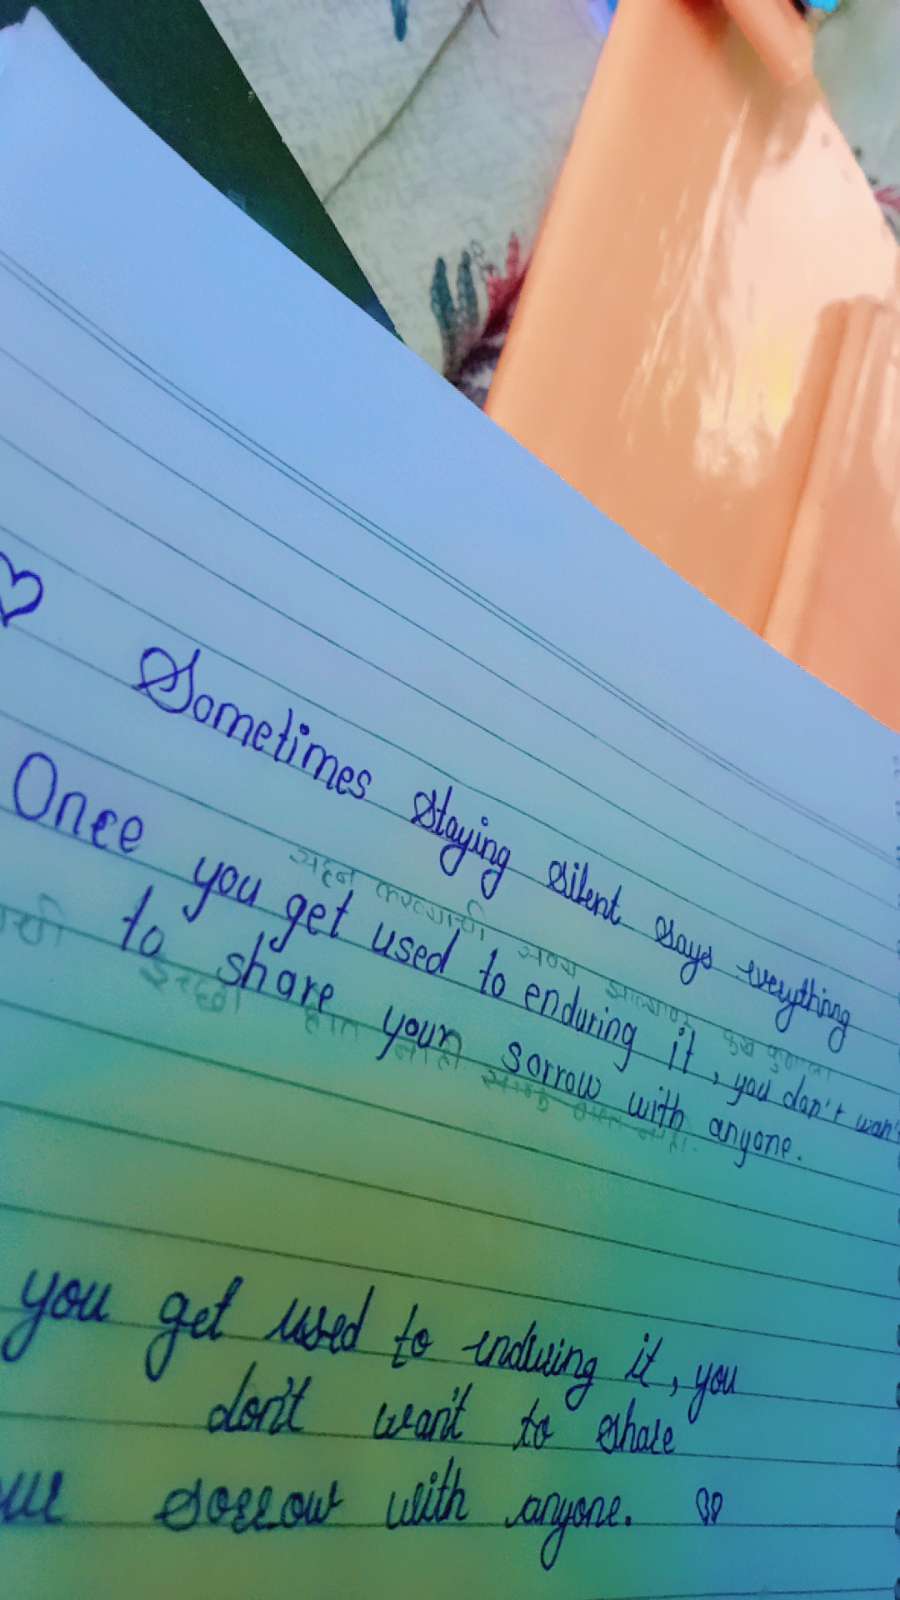 Sometimes staying silent says everything
Once you get used to enduring it, you don't wan't
to share your sorrow with anyone.
you get used to enduring it, you
don't wan't to share
sorrow with anyone.